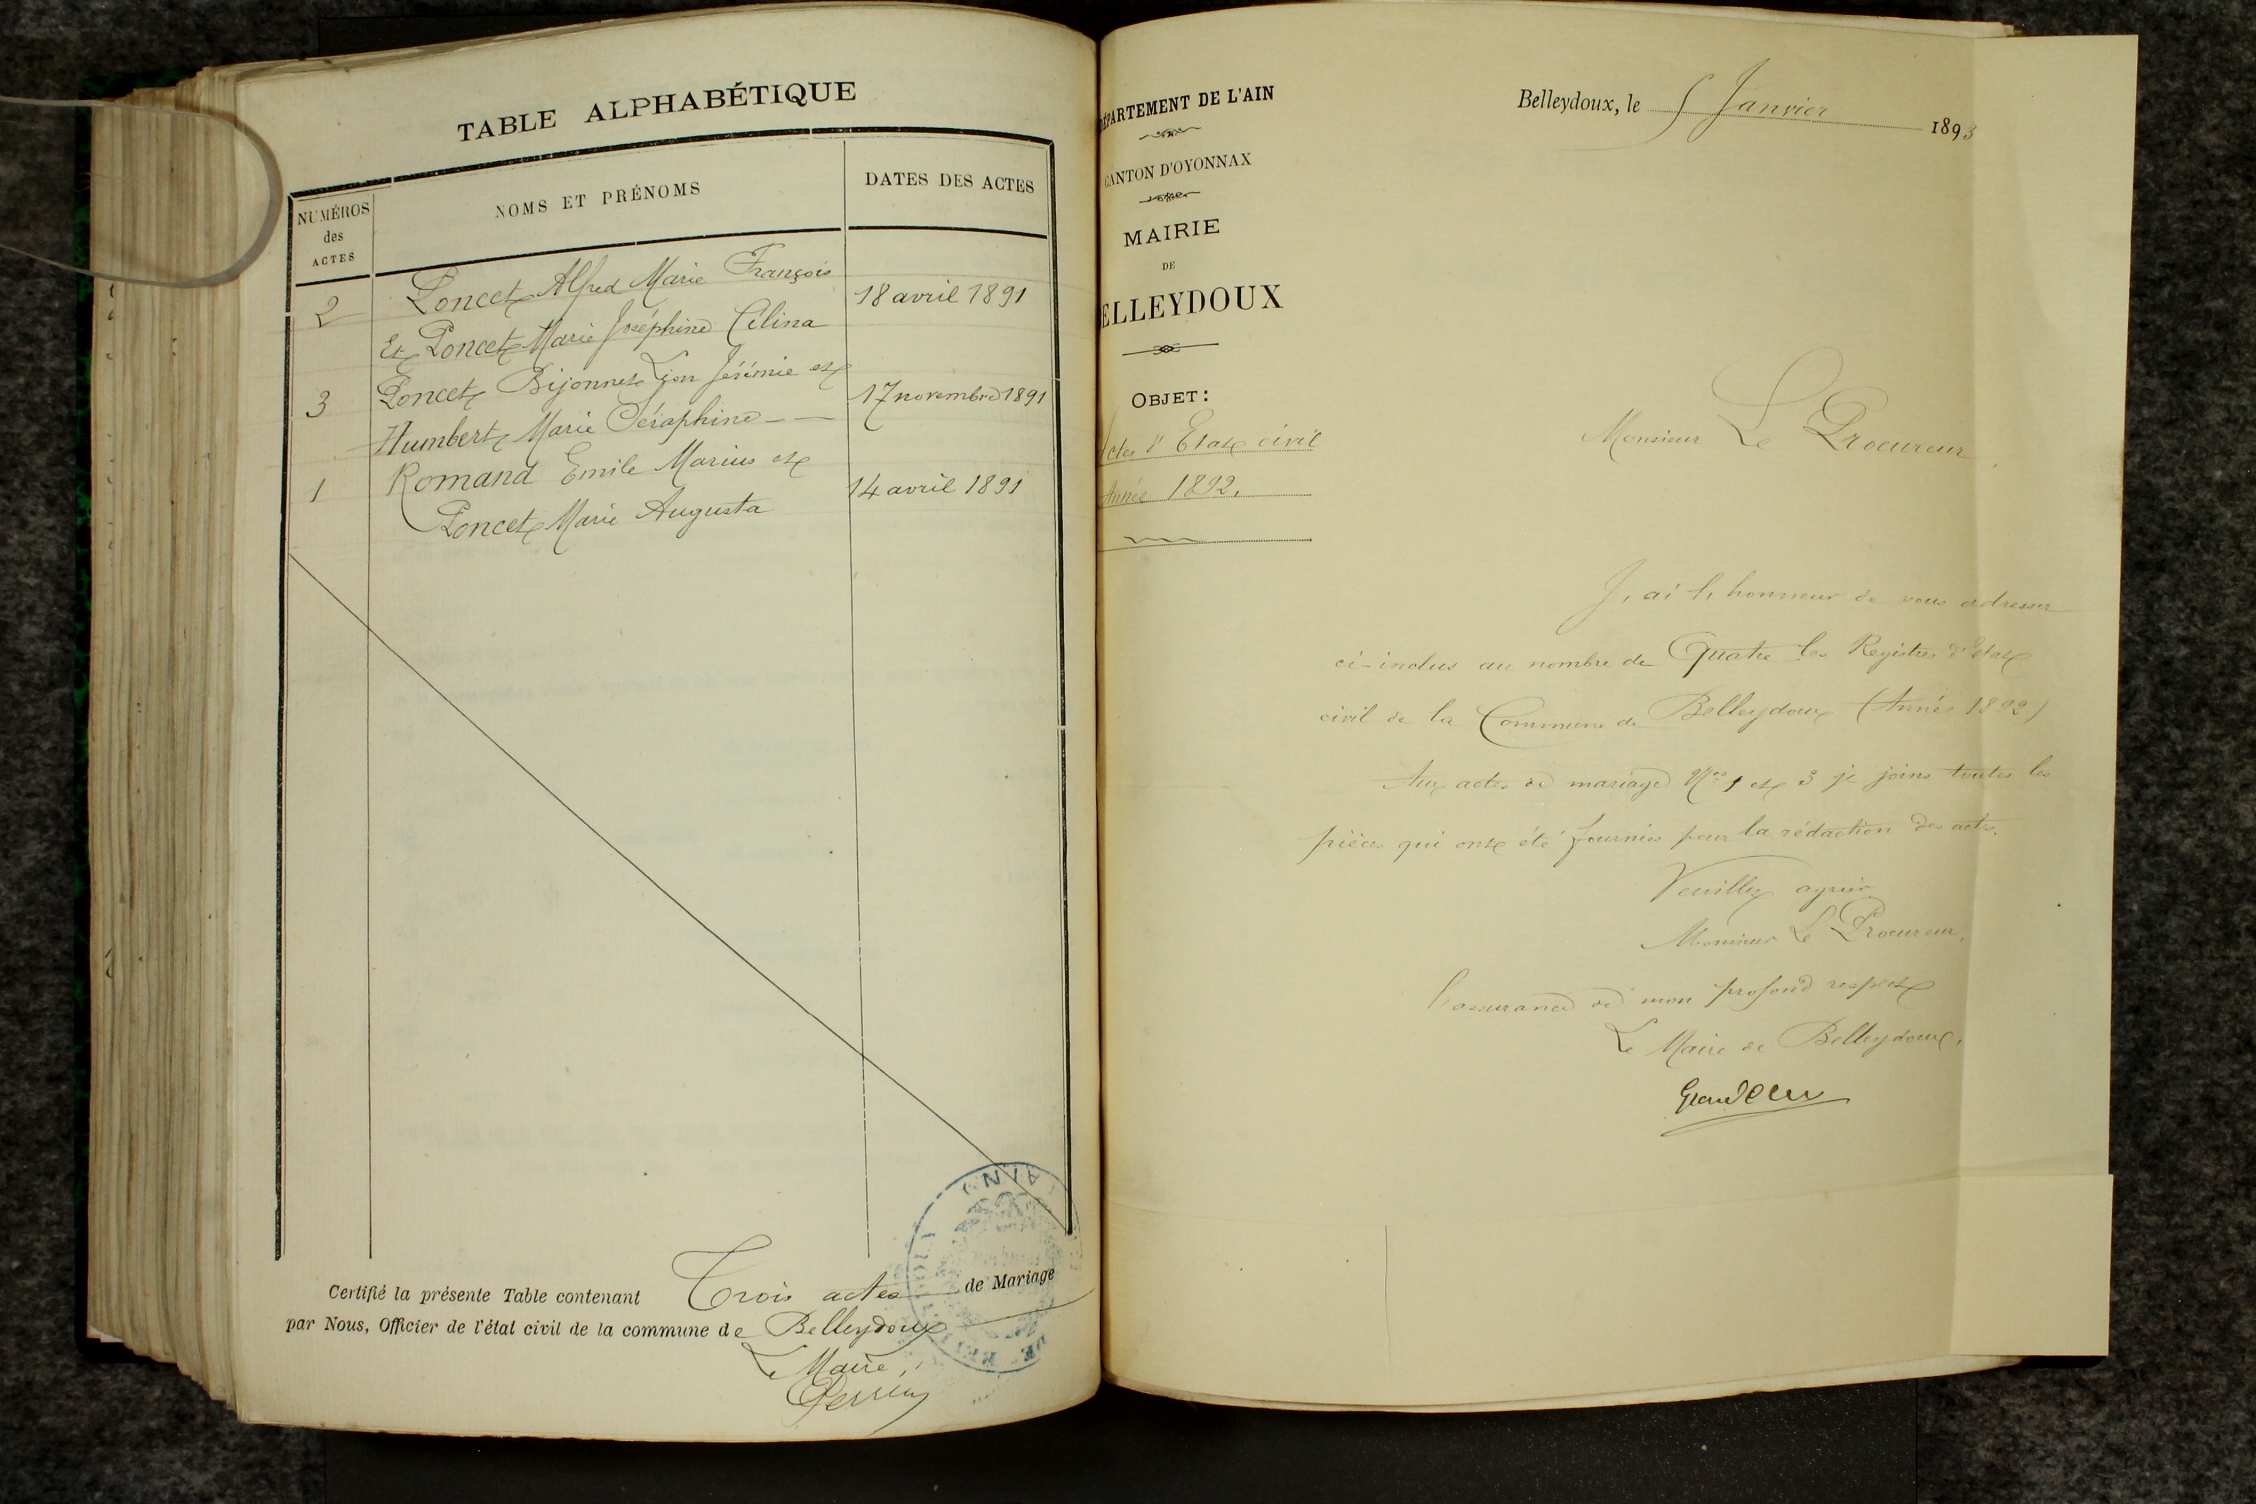 TABLE ALPHABÉTIQUE
NUMÉROS
des
ACTES
NOMS ET PRÉNOMS
DATES DES ACTES
2
Poncet Alfred Marie François
18 avril 1891
Et Poncet Marie Joséphine Célina
3
Poncet Bijonnet Léon Jérémie et
17 novembre 1891
Humbert Marie Séraphine
1
Romand Emile Marius et
14 avril 1891
Poncet Marie Augusta
Certifié la présente Table contenant Trois actes de Mariage
par Nous, Officier de l'état civil de la commune de Belleydoux
Le Maire,
DÉPARTEMENT DE L'AIN
CANTON D'OYONNAX
MAIRIE
DE
ELLEYDOUX
OBJET:
Actes d'Etat civil
Année 1892.
Belleydoux, le 5 Janvier 1893
Monsieur Le Procureur
J'ai l'honneur de vous adresser
ci-inclus au nombre de Quatre les Registres d'état
civil de la Commune de Belleydoux (Année 1892)
Aux actes de mariage Nos 1 et 3 je joins toutes les
pièces qui ont été fournies pour la rédaction des actes.
Veuillez agréer
Monsieur Le Procureur,
l'assurance de mon profond respect
Le Maire de Belleydoux,